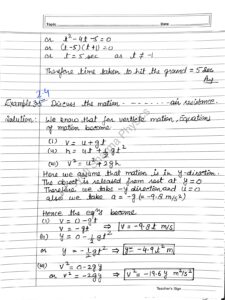 Topic
Date
or t² - 4t - 5 = 0
or (t-5)(t+1) = 0
or t = 5 sec as t ≠ -1
Therefore time taken to hit the ground = 5 sec
Ans
2.4
Example: Discuss the motion - - - - - - - air resistance.
Solution: We know that for vertical motion, Equations
of motion become
(i) v = u + gt
(ii) h = ut + ½gt²
(iii) v² = u² + 2gh
Here we assume that motion is in Y-direction
The object is released from rest at y = 0
Therefore we take -y direction and u = 0
also we take a = -g (= -9.8 m/s²)
Hence the eqⁿs become
(i) v = 0 - gt
v = -gt ⇒ v = -9.8t m/s
(ii) y = 0 - ½gt²
or y = -½gt² ⇒ y = -4.9t² m
(iii) v² = 0 - 2gy
or v² = -2gy ⇒ v² = -19.6y m²/s²
Teacher's Sign